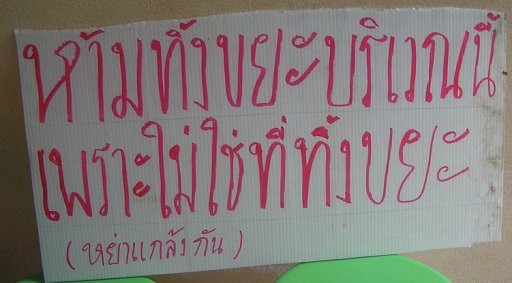 ห้ามทิ้งขยะบริเวณนี้
เพราะไม่ใช่ที่ทิ้งขยะ
(หย่าแกล้งกัน)